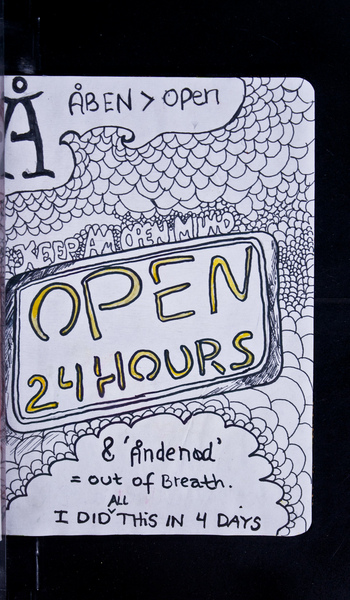 Å
ÅBEN > Open
KEEP AN OPEN MIND
OPEN
24 HOURS
& 'Åndenød'
= out of Breath.
ALL
I DID THiS IN 4 DAYS